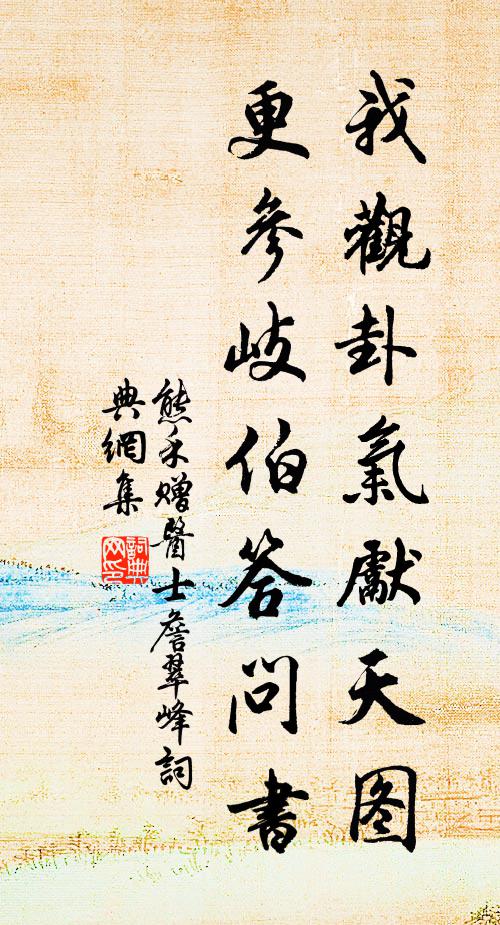 我觀卦氣獻天图
更參岐伯答問書
熊禾贈醫士詹翠峰詞
典網集
詞典
网印